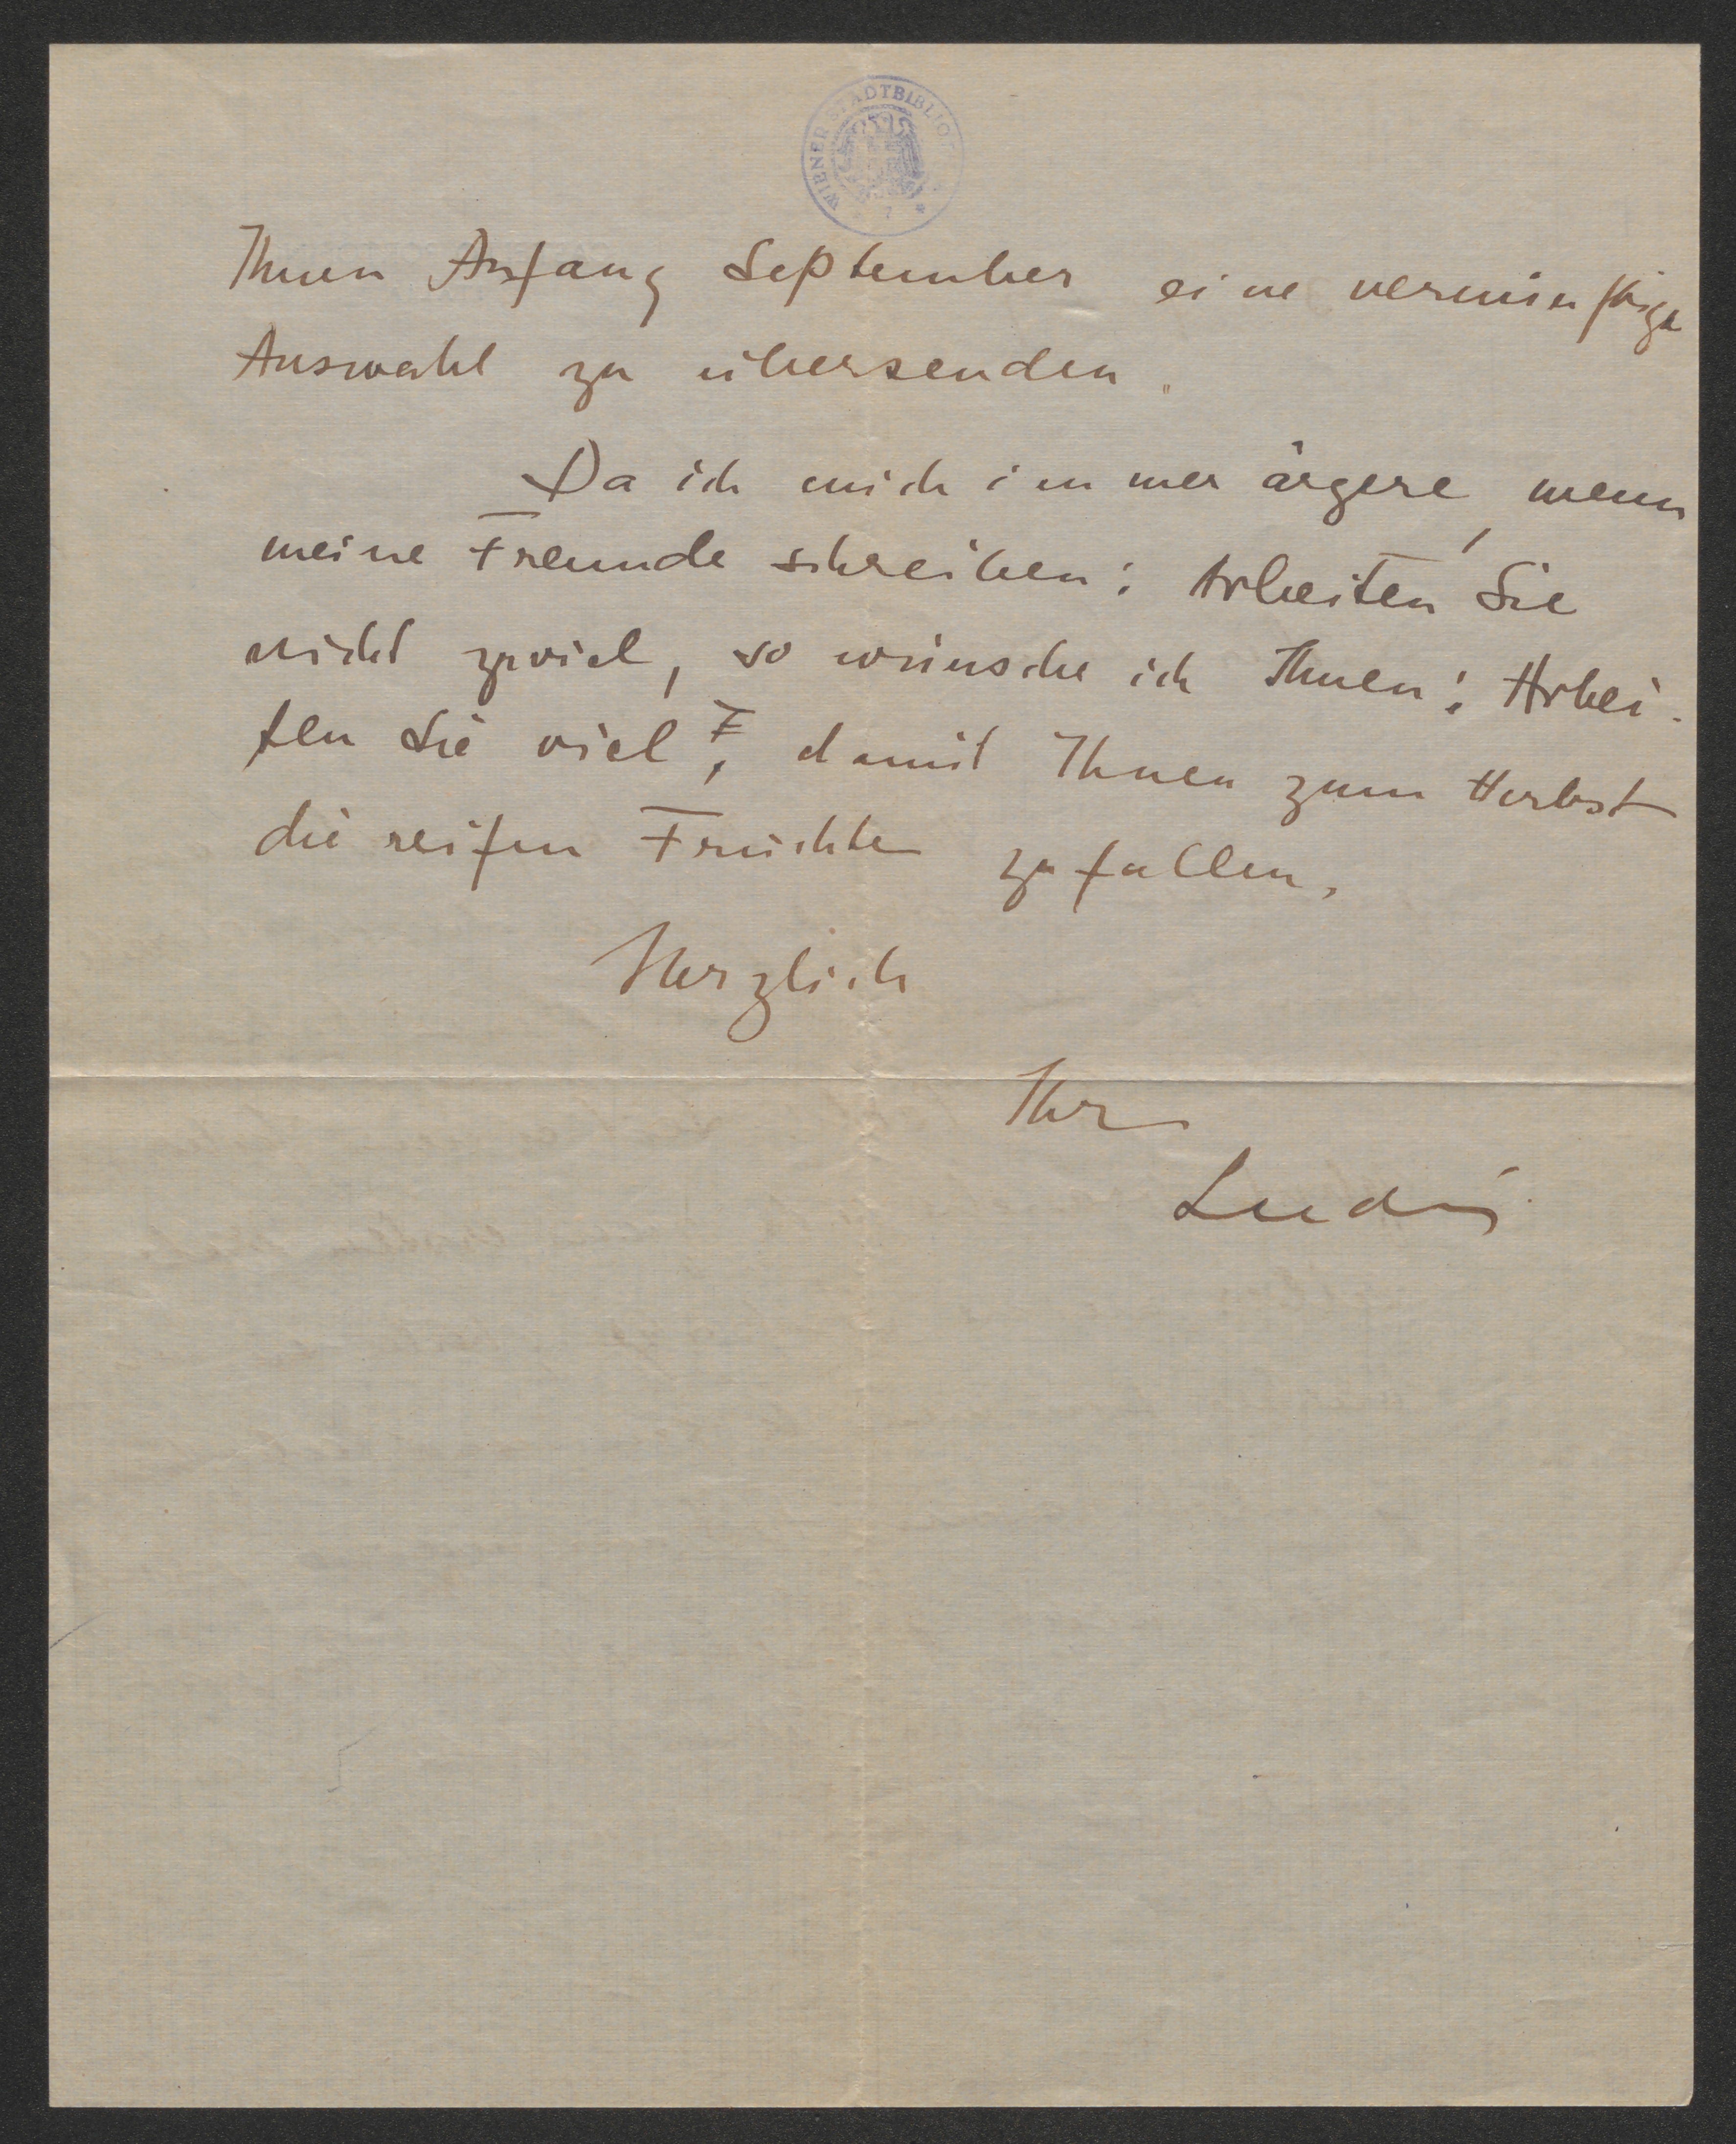 WIENER STADTBIBLIO
7 *
Ihnen Anfang September eine vernünftige
Auswahl zu übersenden.
Da ich mich immer ärgere, wenn
meine Freunde schreiben: Arbeiten Sie
nicht zuviel, so wünsche ich Ihnen: Arbei-
ten Sie viel, damit Ihnen zum Herbst
die reifen Früchte zufallen.
Herzlich
Ihr
Ludwig